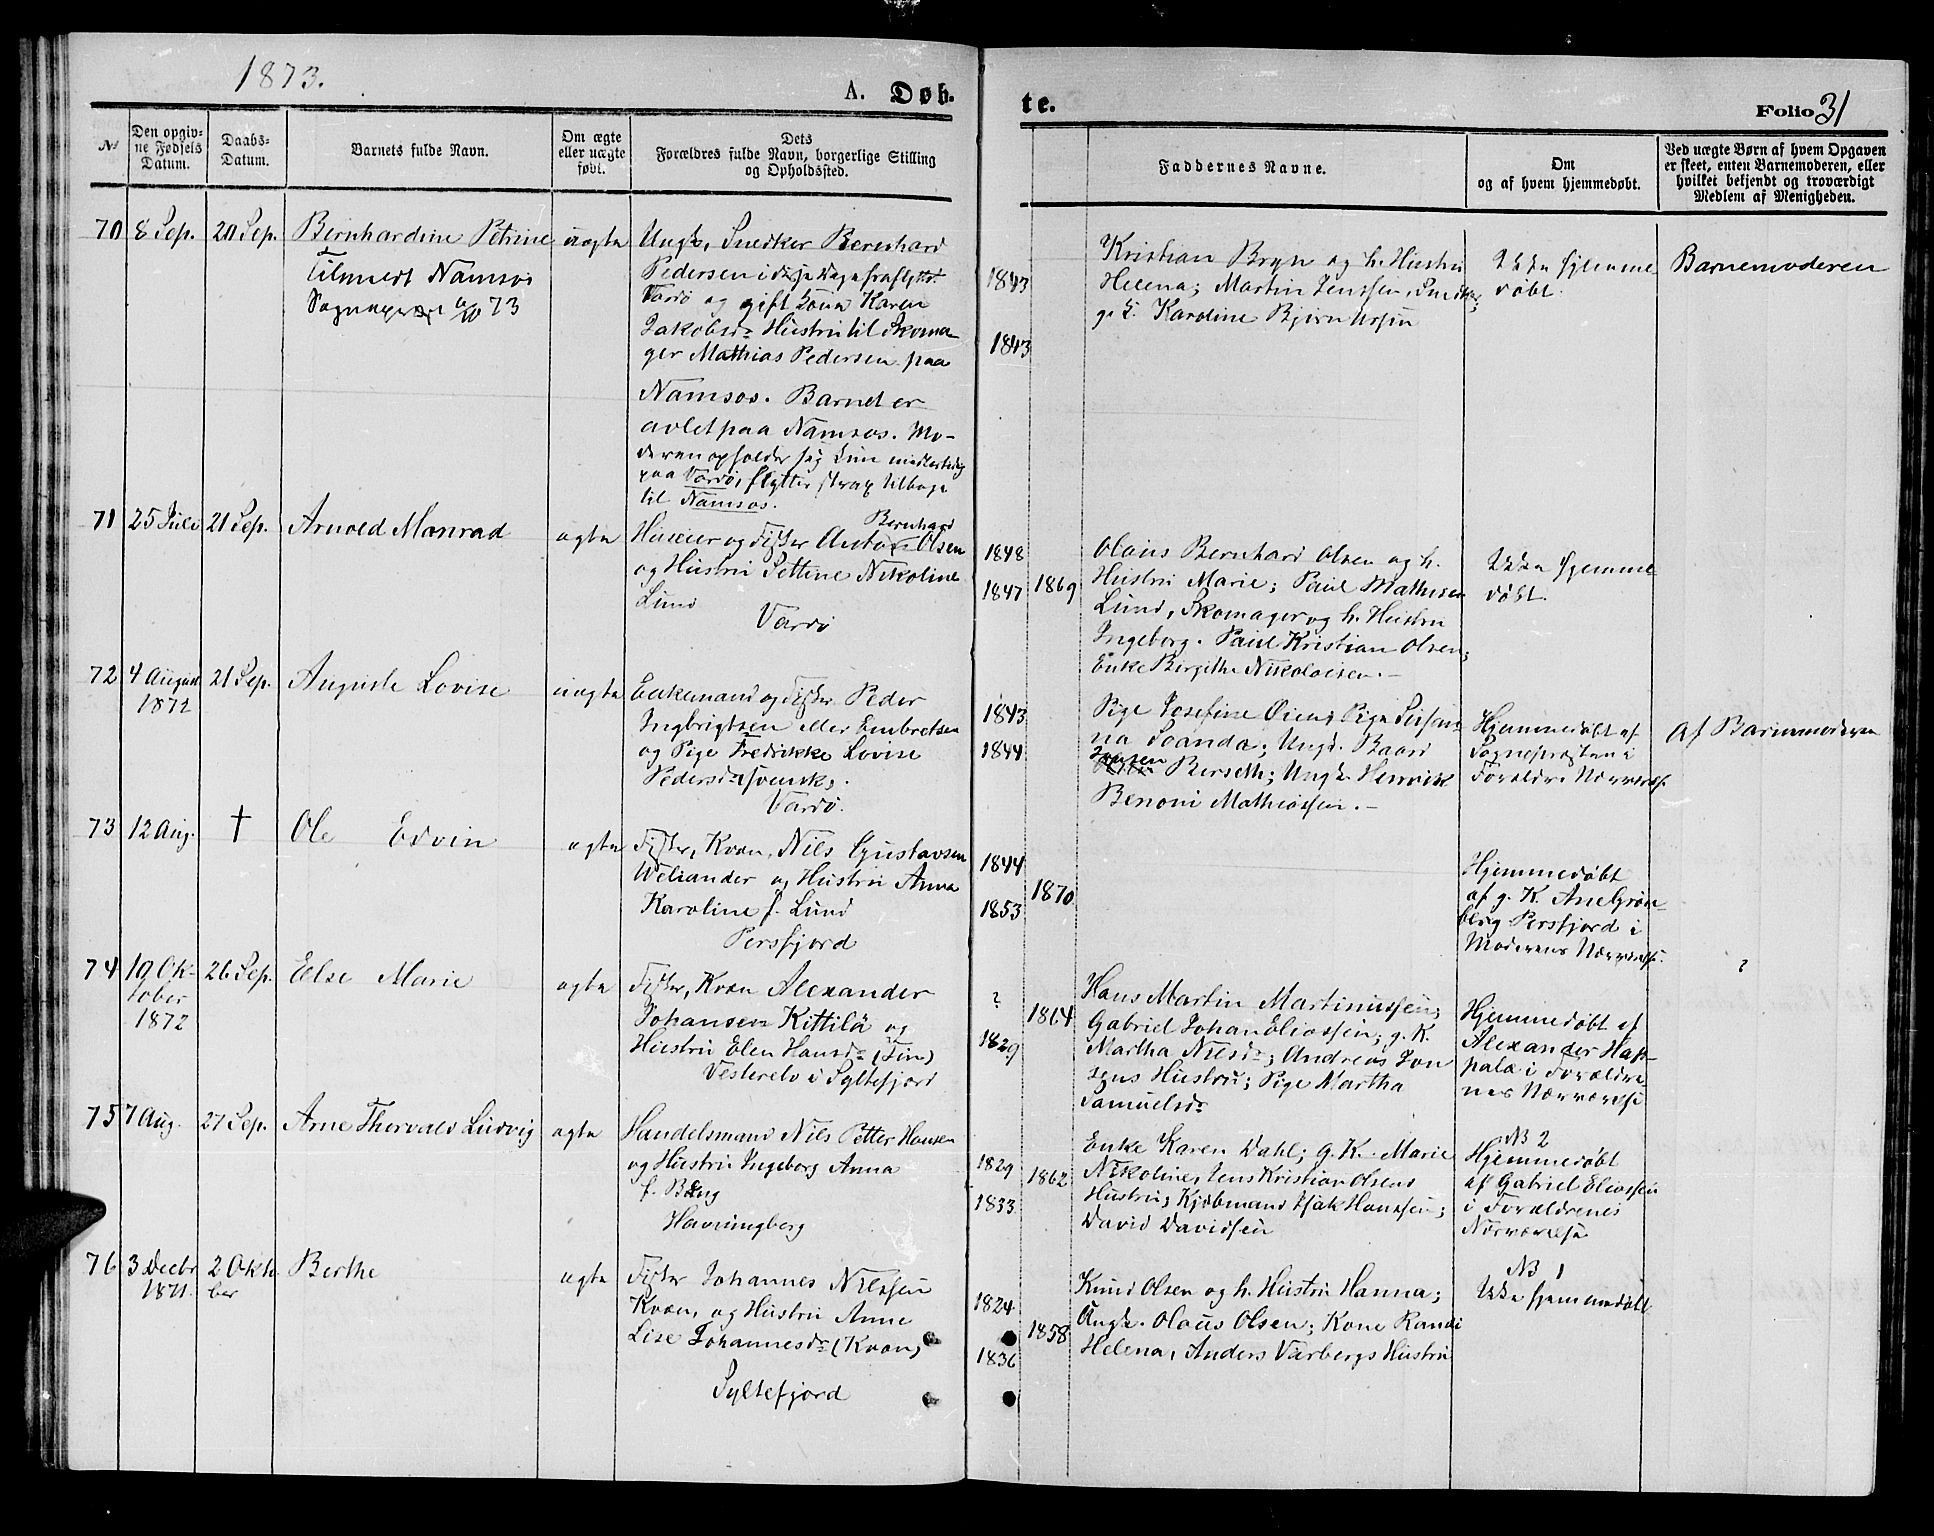 1873.
A. Døb.
te.
Folio 31
No
Den opgiv-
ne Fødsels
Datum.
Daabs-
Datum.
Barnets fulde Navn.
Om ægte
eller uægte
født.
Dets
Forældres fulde Navn, borgerlige Stilling
og Opholdssted.
Faddernes Navne.
Om
og af hvem hjemmedøbt.
Ved uægte Børn af hvem Opgaven
er skeet, enten Barnemoderen, eller
hvilket bekjendt og troværdigt
Medlem af Menigheden.
70 8 Sep. 20 Sep. Bernhardine Petrine uægte
Tilmeldt Namsos
73
Ungk. Snedker Bernhard
Pedersen i disse Dage fraflyttet
Vardö og gift Kone Karen
Jakobsdr Hustru til Skoma
ger Mathias Pedersen paa
Namsos. Barnet er
avlet paa Namsos. Mo-
deren opholder sig kun midlertidig
paa Vardö, flytter strax tilbage
til Namsos.
1843
1843
Kristian Bryn og h. Hustru
Helena; Martin Jenssen, Snedker;
g. K. Karoline Bjørnussen
Ikke hjemme
döbt.
Barnemoderen
71 25 Juli 21 Sep. Arnold Monrad ægte
Bernhard
Huseier og Fisker Anton Olsen
og Hustru Settine Nikoline
Lund
Vardö
1848
1847 1869
Olaus Bernhard Olsen og h.
Hustru Marie; Paul Mathisen
Lund, Skomager og h. Hustru
Ingeborg. Paul Kristian Olsen;
Enke Birgithe Nikolaisen. -
Ikke hjemme
döbt.
72 4 August 21 Sep. Auguste Lovise uægte
1872
Enkemand og Fisker Peder
Ingbrigtsen eller Embretsen
og Pige Fredrikke Lovise
Pedersdr svensk,
Vardö.
1843
1844
Pige Josefine Öien; Pige Susan-
na Soanda; Ungd. Baard
Jensen Berseth; Ungk. Henrik
Benoni Mathiassen. -
Hjemmedöbt af
Sognepræsten i
Forældr. Nærværelse
Af Barnemoderen
73 12 Aug. † Ole Edvin ægte
Fisker, Kvæn, Nils Gustavsen
Weliander og Hustru Anna
Karoline f. Lund
Persfjord
1844
1853 1870
Hjemmedöbt
af g. K. Ane Grön-
berg Persfjord i
Moderens Nærværelse.
74 19 Ok- 26 Sep. Else Marie ægte
tober
1872
Fisker, Kvæn Alexander
Johansen Kittilä og
Hustru Elen Hansdr (Fin)
Vesterelv i Syltefjord
?
1829 1864
Hans Martin Martinussen;
Gabriel Johan Eliassen; g. K.
Martha Nilsdr; Andreas Jon
sens Hustru; Pige Martha
Samuelsdr
Hjemmedöbt af
Alexander Hap-
pala i Forældre
nes Nærværelse
?
75 7 Aug. 27 Sep. Arne Thorvald Ludvig ægte
Handelsmand Nils Petter Hansen
og Hustru Ingeborg Anna
f. Bang
Havningberg
1829
1833 1862
Enke Karen Dahl; g. K. Marie
Nikoline, Jens Kristian Olsens
Hustru; Kjöbmand Isak Hanssen;
David Davidsen
NB 2
Hjemmedöbt
af Gabriel Eliassen
i Forældrenes
Nærværelse
76 3 Decbr 2 Okto Berthe ægte
1871. ber
Fisker Johannes Nilssen
Kvæn, og Hustru Anne
Lise Johannesdr (Kvæn)
Syltefjord
1824
1836 1858
Knud Olsen og h. Hustru Hanna;
Ungk. Olaus Olsen; Kone Randi
Helena, Anders Varbergs Hustru
NB 1
Ikke hjemmedöbt